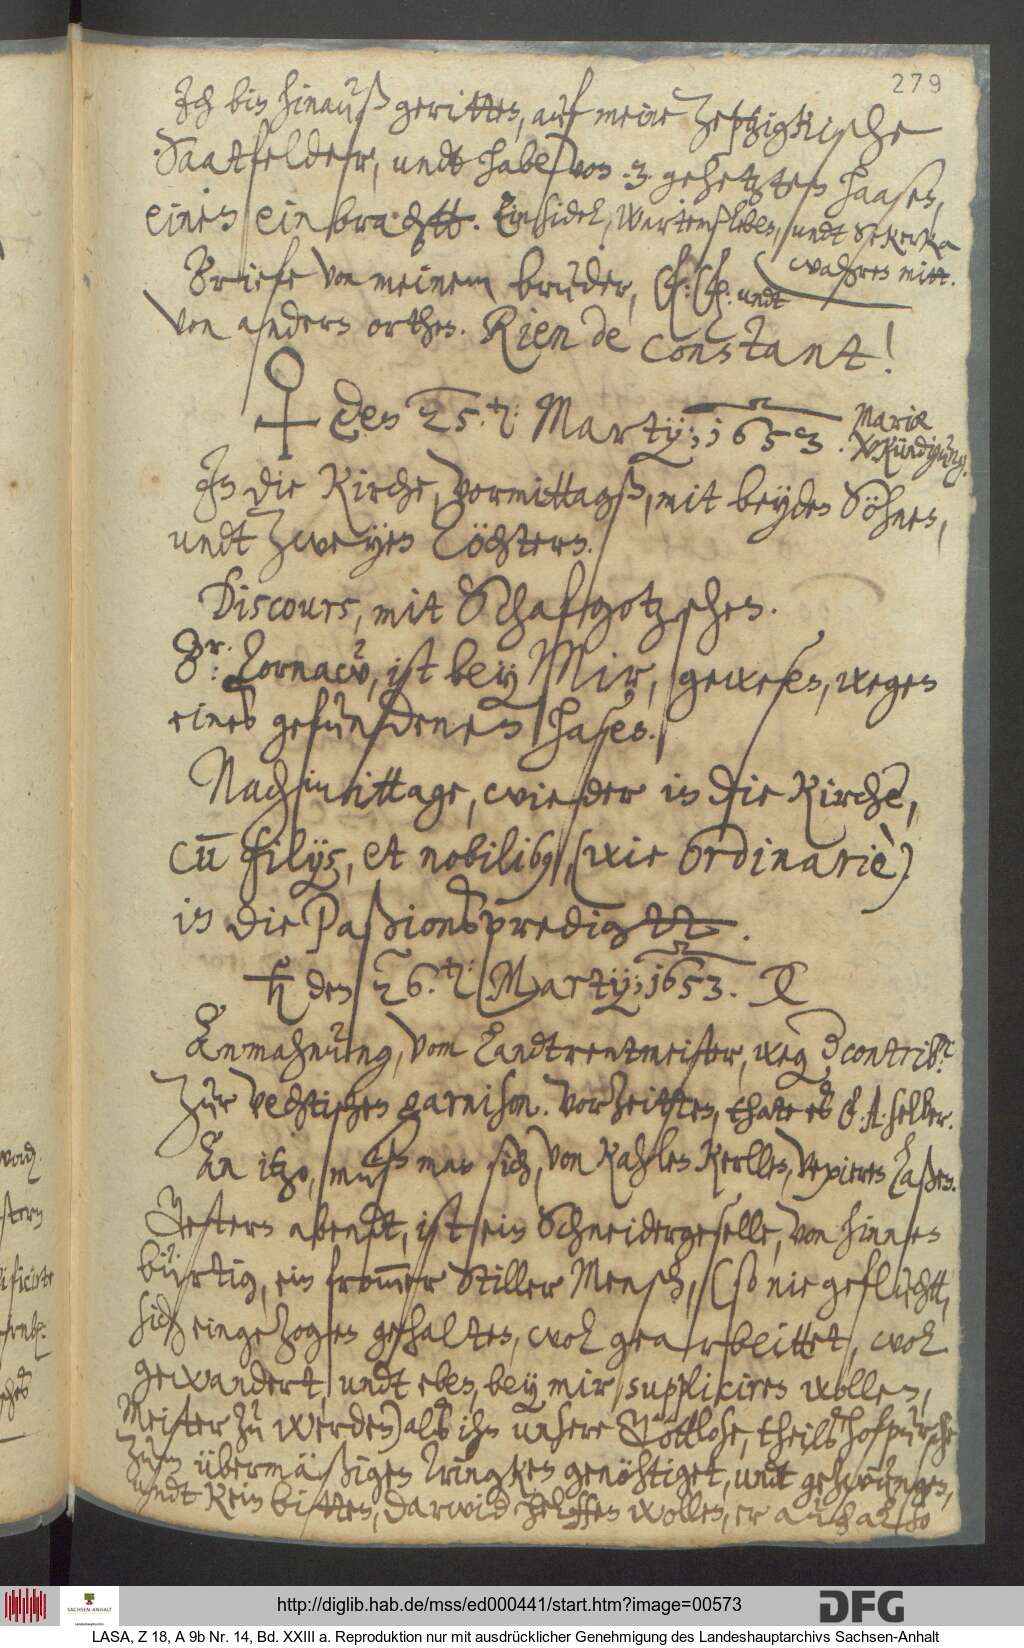 279
Ich bin hinauß geritten, auf meine Zeptzigkische
Saatfelder, undt habe von .3. gehetzten haasen,
einen einbrachtt. Einsidel, Wartensleben, undt Sekerka
wahren mitt.
Briefe von meinem bruder, F: F: undt
von andern orthen. Rien de constant!
♀ den 25.t: Martij; 1653. Mariæ
Verkündigung.
In die Kirche, vormittagß, mit beyden Söhnen,
undt zweyen Töchtern.
Discours, mit Schafgotzschen.
Er: Tornacò, ist bey Mir, gewesen, wegen
eines gefundenen hasen.
Nachmittage, wieder in die Kirche,
cū filijs, et nobilib9, (wie ordinariè)
in die Paßionspredigtt.
♄ den 26.t: Martij; 1653.
Anmahnung, vom Landtrentmeister, weg. d contrib.n
zur Vechtischen garnison. Vorzeitten, thate es F. A. selber.
An itzo, muß man sich, von kahlen Kerllen, vexiren laßen.
Gestern abendt, ist ein Schneidergeselle, von hinnen
bürtig, ein from̄er stiller Mensch, (so nie geflucht,
sich eingezogen gehalten, wol gearbeittet, wol
gewandert, undt eben, bey mir suppliciren wollen,
Meister zu werden) als ihn unsere Gottlose, theils hofpursche
zum übermäßigen trincken genöhtiget, undt gezwungen,
undt kein bitten, darwid helffen wollen, er auch also
http://diglib.hab.de/mss/ed000441/start.htm?image=00573
DFG
SACHSEN-ANHALT
LASA, Z 18, A 9b Nr. 14, Bd. XXIII a. Reproduktion nur mit ausdrücklicher Genehmigung des Landeshauptarchivs Sachsen-Anhalt